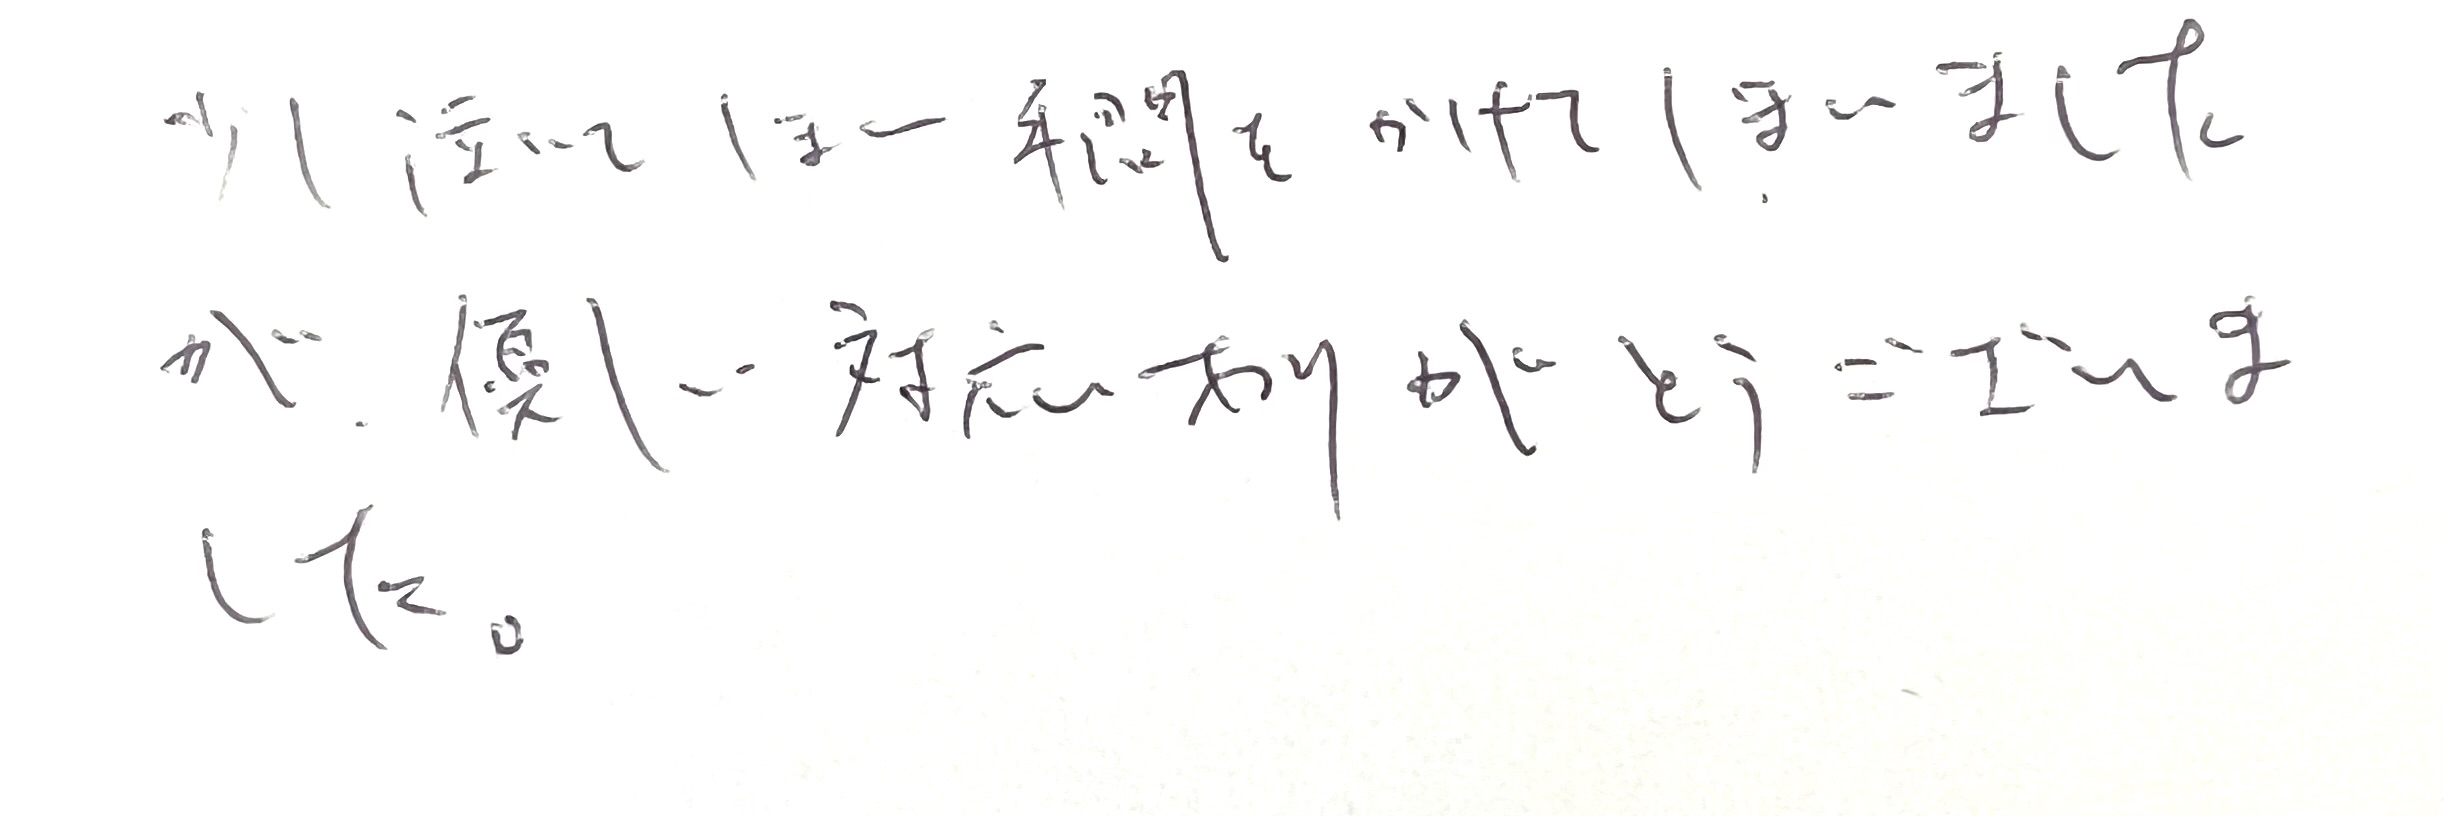 少し泣いてしまい手間をかけてしまいました
が、優しい対応ありがとうございま
した。